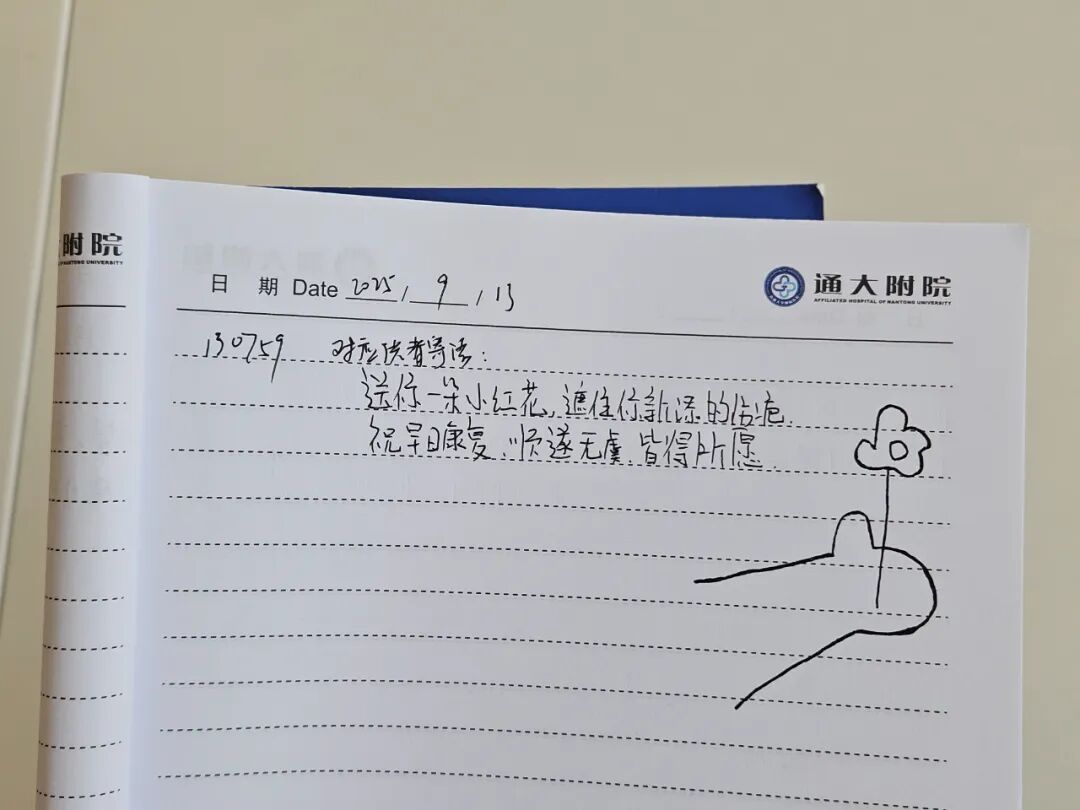 附院
NANTONG UNIVERSITY
日 期 Date 2025 / 9 / 13
通大附院
AFFILIATED HOSPITAL OF NANTONG UNIVERSITY
130759 对应供者寄语：
送你一朵小红花,遮住你新添的伤疤.
祝早日康复,顺遂无虞,皆得所愿.